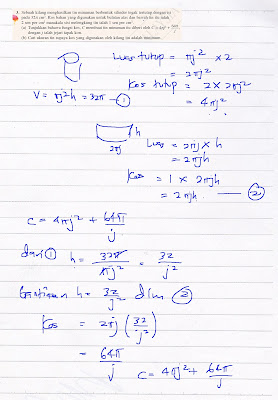 4. Sebuah kilang menghasilkan tin minuman berbentuk silinder tegak tertutup dengan isi
padu 32π cm³. Kos bahan yang digunakan untuk bahagian atas dan bawah tin itu ialah
2 sen per cm² manakala sisi melengkung tin ialah 1 sen per cm².
(a) Tunjukkan bahawa dengan kos, C membuat tin minuman itu ialah C = 4πj² + 64π/j
dengan j ialah jejari tapak tin.
(b) Cari ukuran tin supaya kos yang digunakan oleh kilang itu adalah minimum.
Luas tutup = πj² × 2
= 2πj²
Kos tutup = 2 × 2πj²
= 4πj²
V = πj²h = 32π — ①
h
2πj
Luas = 2πj × h
= 2πjh
Kos = 1 × 2πjh
= 2πjh — ②
C = 4πj² + 64π/j
dari ① h = 32π/πj² = 32/j²
Gantikan h = 32/j² dlm ②
Kos = 2πj (32/j²)
= 64π/j
C = 4πj² + 64π/j